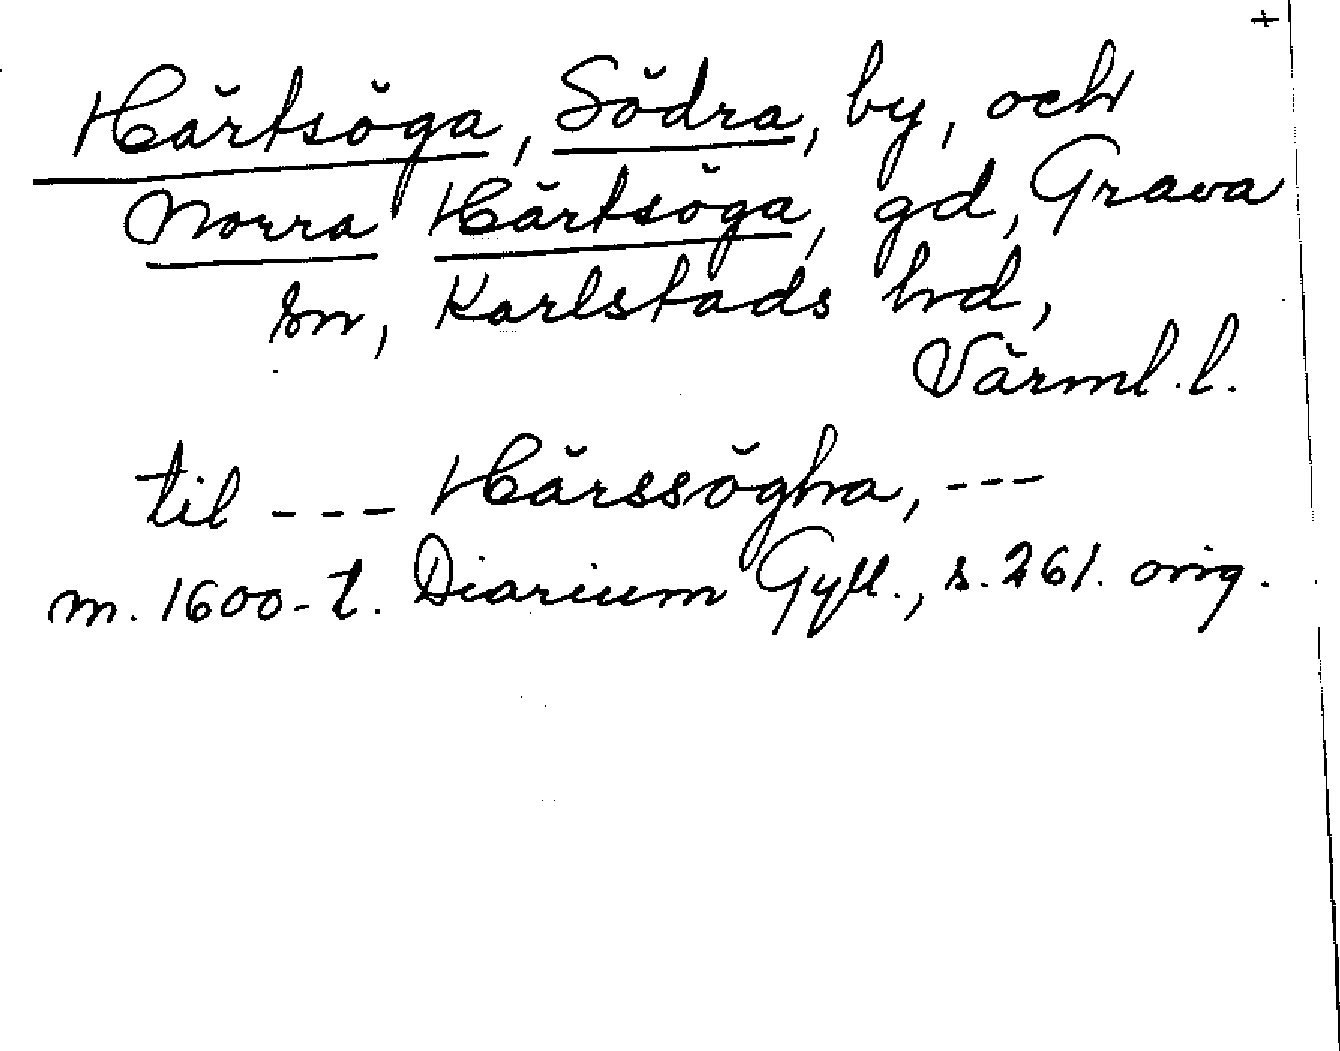 +
Härtsöga, Södra, by, och
Norra Härtsöga, gd, Grava
sn, Karlstads hd,
Värml. l.
til --- Härssögha, ---
m. 1600-t. Diarium Gyll., s. 261. orig.